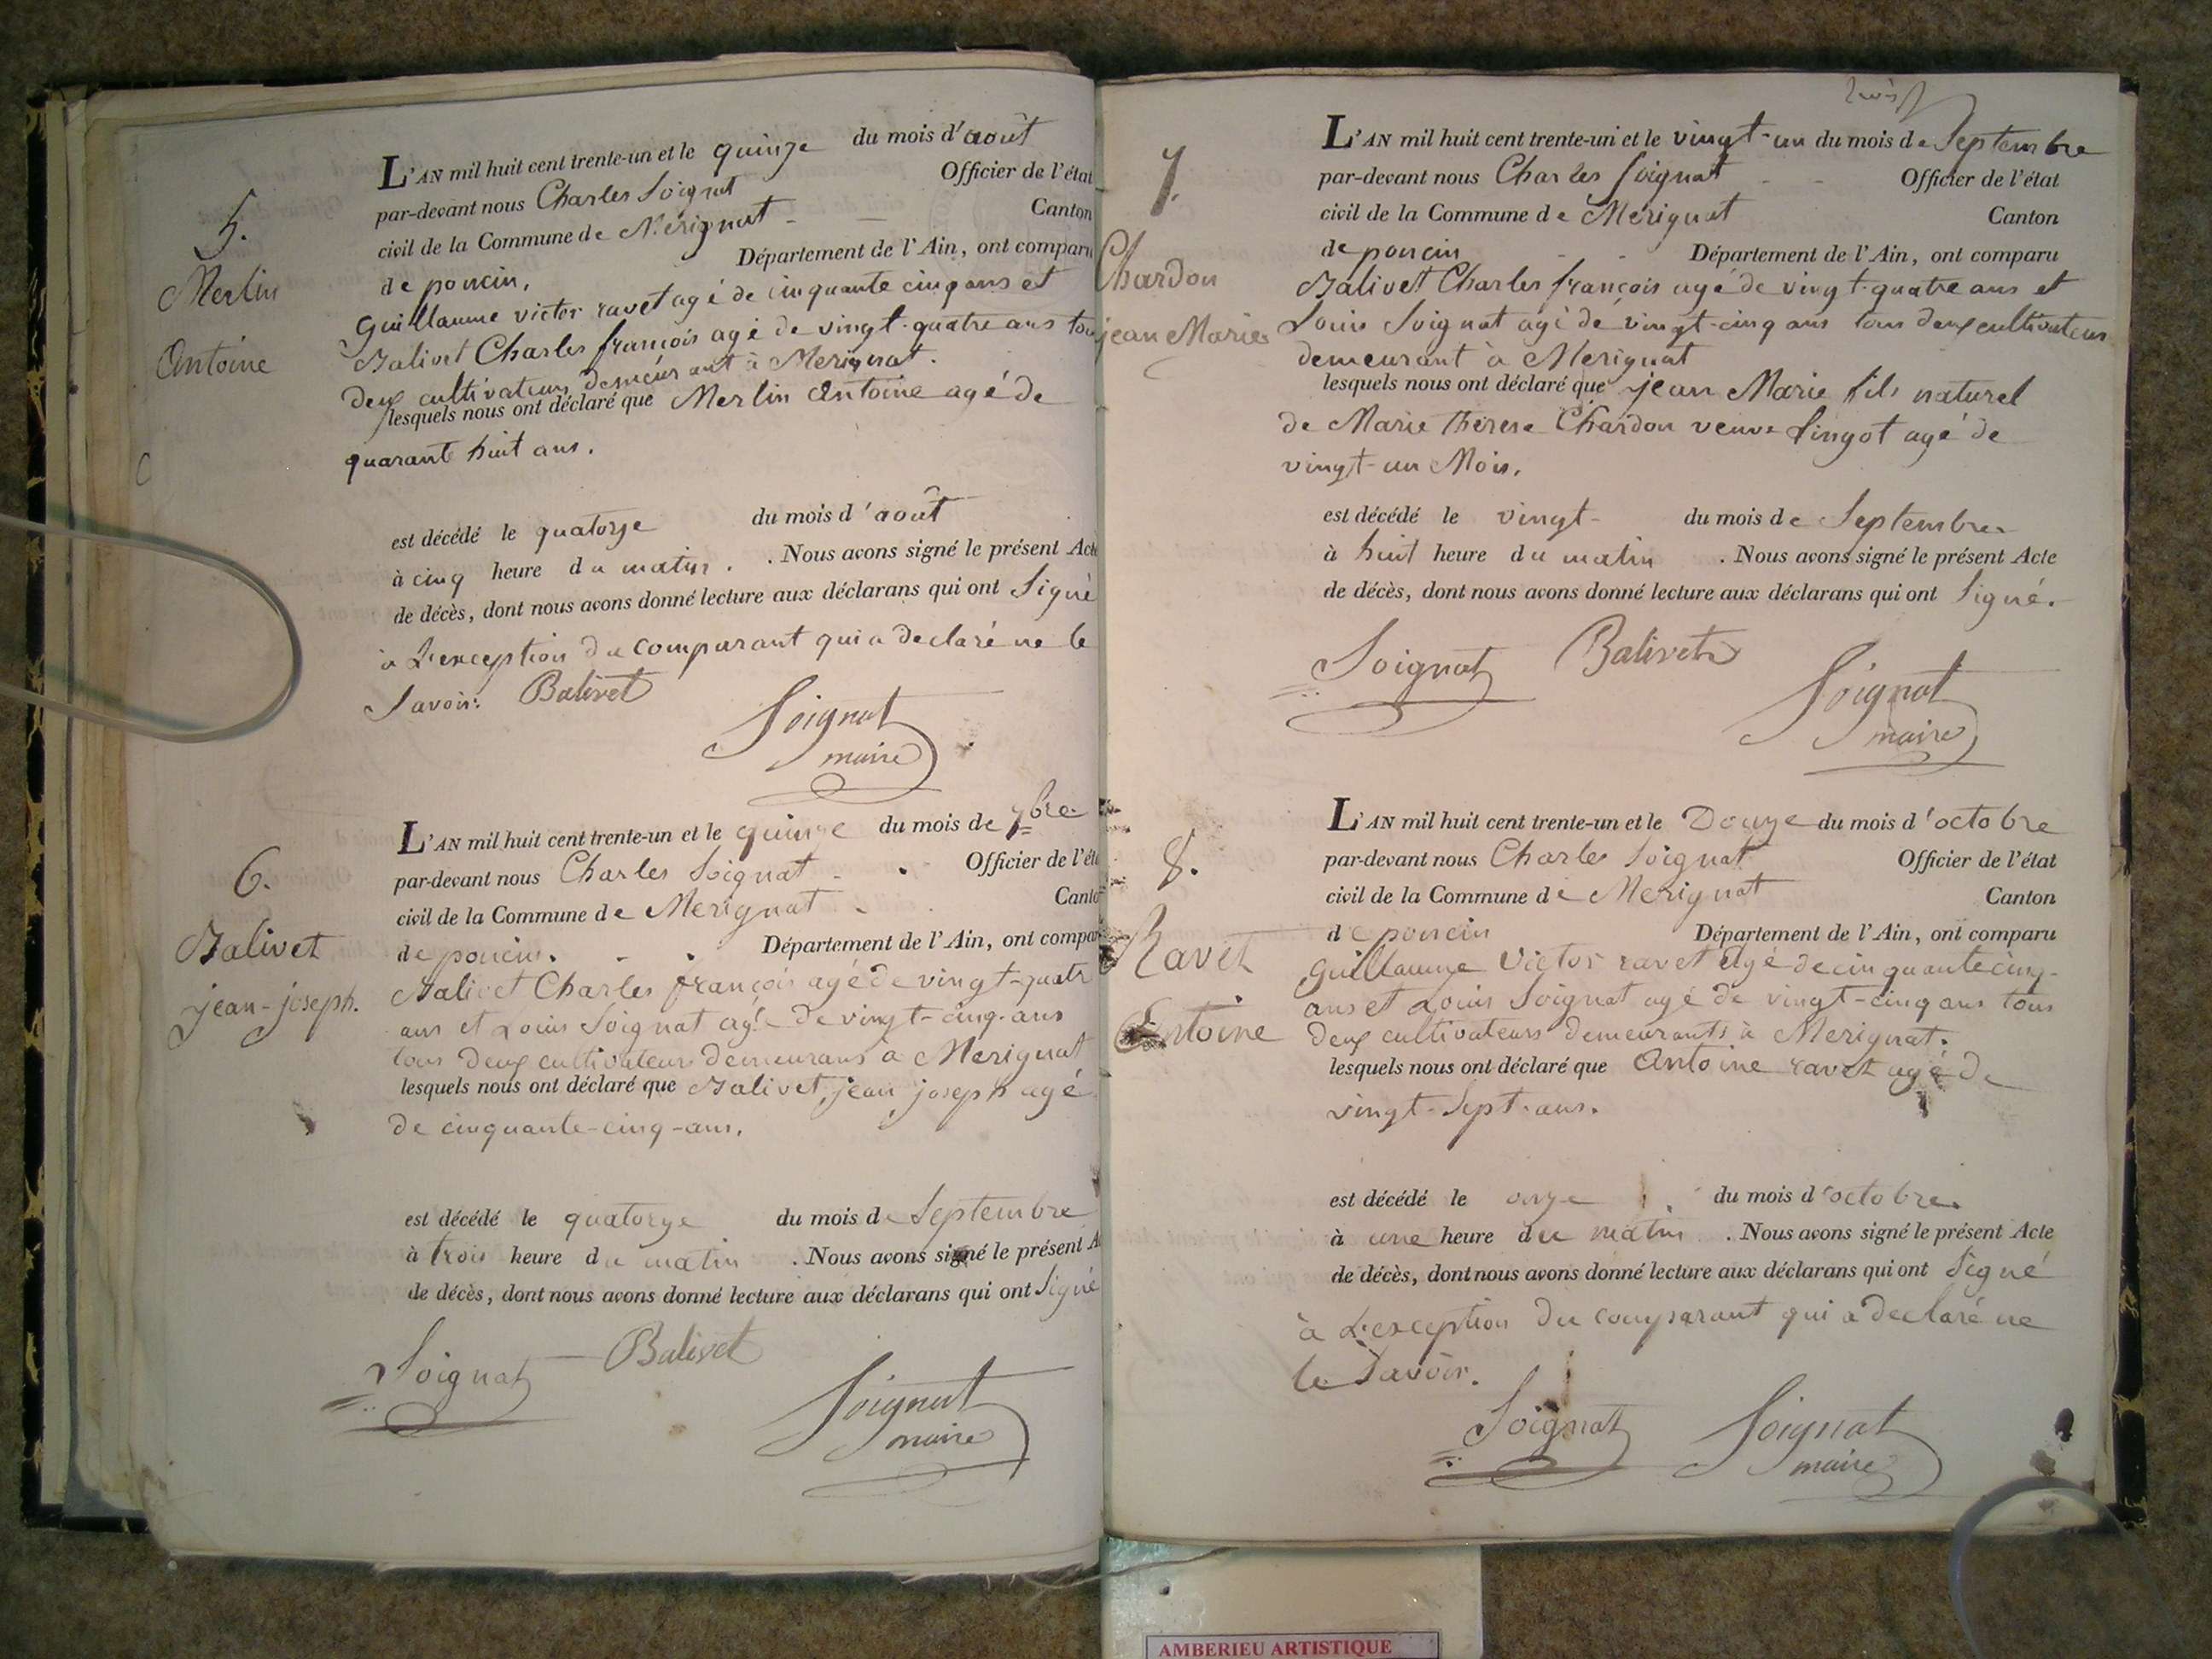 5.
Merlin
Antoine
L'AN mil huit cent trente-un et le quinze du mois d'août
par-devant nous Charles Soignat Officier de l'état
civil de la Commune de Merignat - - Canton
de poncin. Département de l'Ain, ont comparu
Guillaume victor ravet agé de cinquante cinq ans et
Balivet Charles françois agé de vingt-quatre ans tous
deux cultivateurs demeurant à Merignat.
lesquels nous ont déclaré que Merlin Antoine agé de
quarante huit ans.
est décédé le quatorze du mois d'août
à cinq heure du matin. . Nous avons signé le présent Acte
de décès, dont nous avons donné lecture aux déclarans qui ont Signé
à L'exception du comparant qui a declaré ne le
Savoir. Balivet
Soignat
maire
6.
Balivet
jean-joseph.
L'AN mil huit cent trente-un et le quinze du mois de 7bre
par-devant nous Charles Soignat - Officier de l'éta
civil de la Commune de Merignat - Canto
de poncin. - . Département de l'Ain, ont compar
Balivet Charles françois agé de vingt-quatr
ans et Louis Soignat agé de vingt-cinq-ans
tous deux cultivateurs demeurans à Merignat
lesquels nous ont déclaré que Balivet, jean joseph agé
de cinquante-cinq-ans.
est décédé le quatorze du mois de Septembre
à trois heure du matin . Nous avons signé le présent A
de décès, dont nous avons donné lecture aux déclarans qui ont Signé
Soignat Balivet
Soignat
maire
7.
Chardon
jean Marie
L'AN mil huit cent trente-un et le vingt-un du mois de Septembre
par-devant nous Charles Soignat - - Officier de l'état
civil de la Commune de Merignat Canton
de poncin - - Département de l'Ain, ont comparu
Balivet Charles françois agé de vingt-quatre ans et
Louis Soignat agé de vingt-cinq ans tous deux cultivateurs
demeurant à Merignat
lesquels nous ont déclaré que jean Marie fils naturel
de Marie therese Chardon veuve Lingot agé de
vingt-un Mois.
est décédé le vingt- du mois de Septembre
à huit heure du matin . Nous avons signé le présent Acte
de décès, dont nous avons donné lecture aux déclarans qui ont Signé.
Soignat Balivet
Soignat
maire
8.
Ravet
Antoine
L'AN mil huit cent trente-un et le Douze du mois d'octobre
par-devant nous Charles Soignat Officier de l'état
civil de la Commune de Merignat Canton
de poncin Département de l'Ain, ont comparu
Guillaume Victor ravet agé de cinquante cinq-
ans et Louis Soignat agé de vingt-cinq ans tous
deux cultivateurs demeurants à Merignat.
lesquels nous ont déclaré que Antoine ravet agé de
vingt-Sept-ans.
est décédé le onze du mois d'octobre.
à une heure du matin . Nous avons signé le présent Acte
de décès, dont nous avons donné lecture aux déclarans qui ont Signé
à L'exception du comparant qui a declaré ne
le Savoir.
Soignat Soignat
maire
AMBERIEU ARTISTIQUE